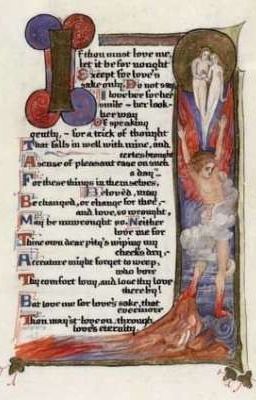 If thou must love me,
let it be for nought
Except for love's
sake only. Do not say
I love her for her
smile – her look –
her way
Of speaking
gently, – for a trick of thought
That falls in well with mine, and
certes brought
A sense of pleasant ease on such
a day –
For these things in themselves,
Beloved, may
Be changed, or change for thee, –
and love, so wrought,
May be unwrought so. Neither
love me for
Thine own dear pity's wiping my
cheeks dry, –
A creature might forget to weep,
who bore
Thy comfort long, and lose thy love
thereby!
But love me for love's sake, that
evermore
Thou may'st love on, through
love's eternity.